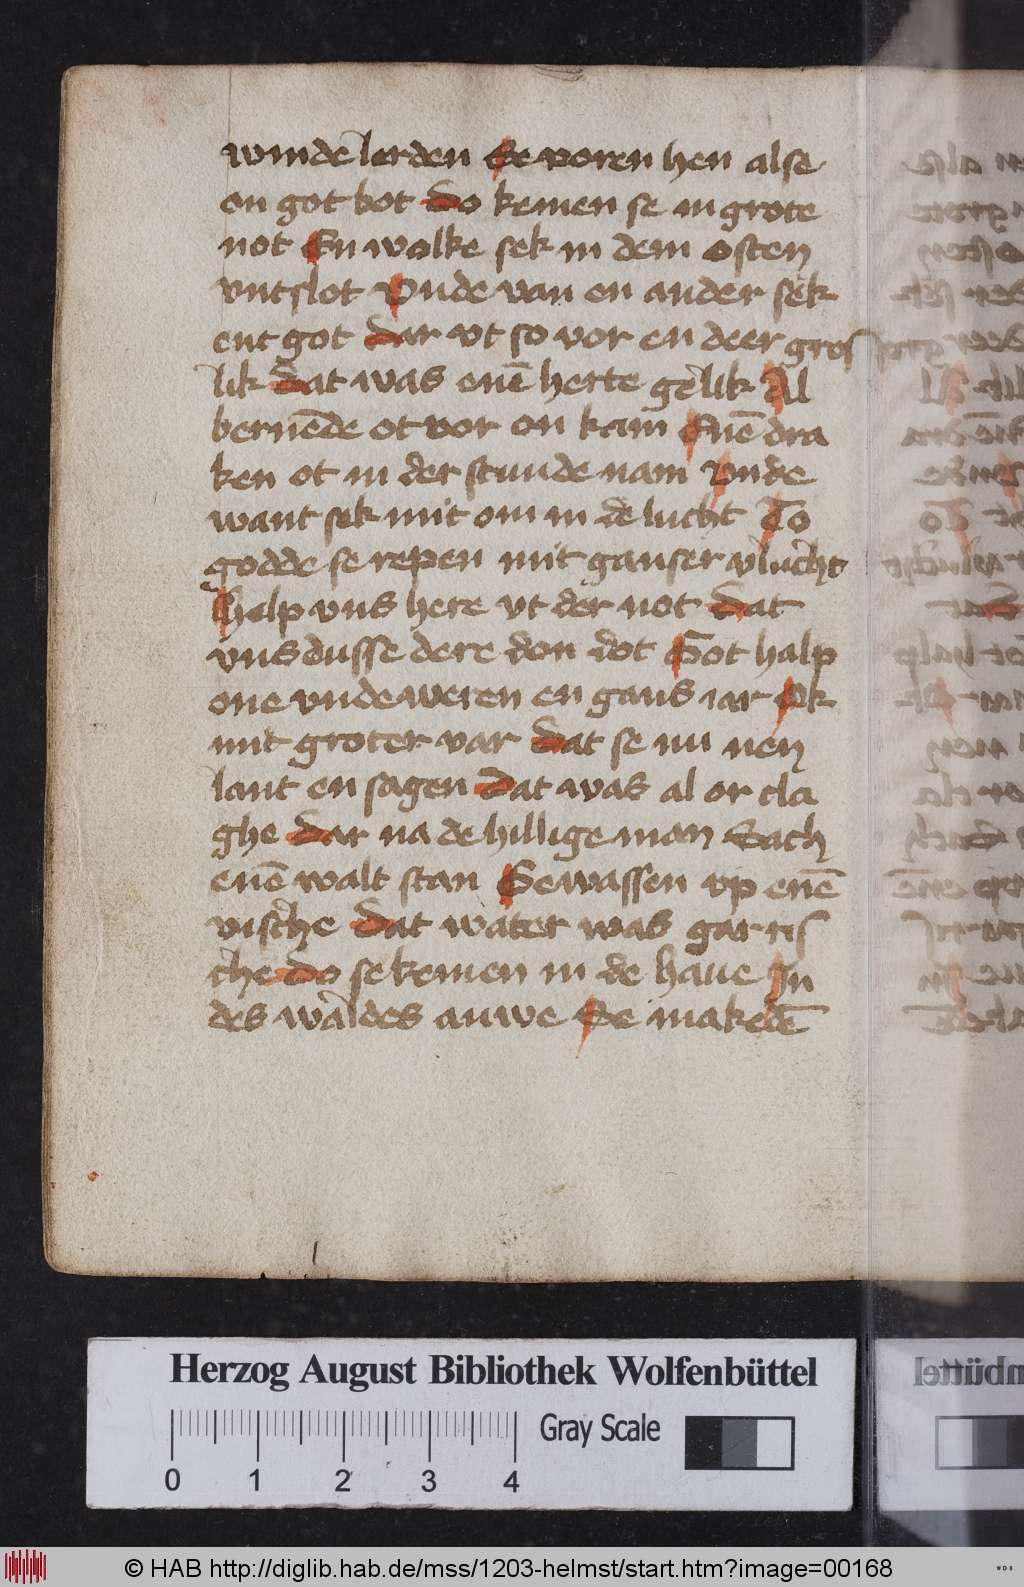 winde lerden Se voren hen alse
on got bot do kemen se in grote
not En wolke sek in dem osten
vntslot Vnde van en ander sek
ent got dar vt so vor en deer gros
lik dat was enē herte gelik Al
bernēde ot vor on kam Enē dra
ken ot in der stunde nam Vnde
want sek mit om in de lucht To
godde se repen mit ganser vlucht
help vns here vt der not dat
vns dusse dere don dot Got halp
one vnde weren en gans iar Ok
mit groter var dat se nu nen
lant en sagen dat was al or cla
ghe dar na de hillige man Sach
enē walt stan Gewassen vp enē
vische dat water was gar ris
che do se kemen in de haue In
des waldes auwe Se makedē
Herzog August Bibliothek Wolfenbüttel
Gray Scale
0 1 2 3 4
© HAB http://diglib.hab.de/mss/1203-helmst/start.htm?image=00168